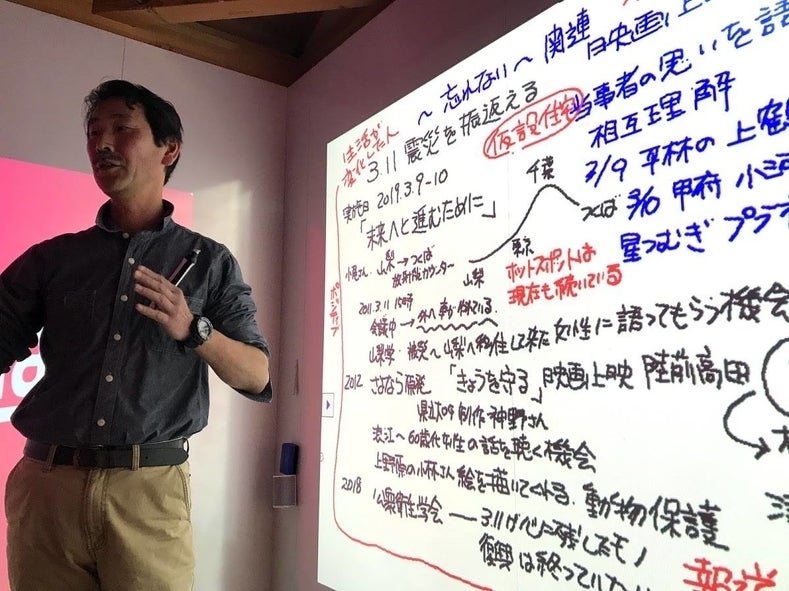 生活が
変化した人
~ 忘れない ~ 関連
日映画上
3.11 震災を振返る
仮設住宅
当事者の思いを語
相互理解
2/9 平林の上
3/10 甲府 小
星つむぎ プラ
実施日 2019.3.9-10
「未来へと進むために」
千葉
つくば
東京
山梨
小尾さん. 山梨 → つくば
放射能カウンター
ホットスポットは
現在も続いている
ポジティブ
2011.3.11 15時
会議中 → 外へ 車が揺れている.
山梨学・被災へ山梨へ移住して来た女性に語ってもらう機会
2012 さよなら原発 「きょうを守る」映画上映 陸前高田
県立大OG 制作 神野さん
浪江へ 60歳代女性の話を聴く機会
上野原の小林さん 絵を描いてくれる. 動物保護
2018 公衆衛生学会 ― 3.11が心に残したモノ
復興は終っていない
報道